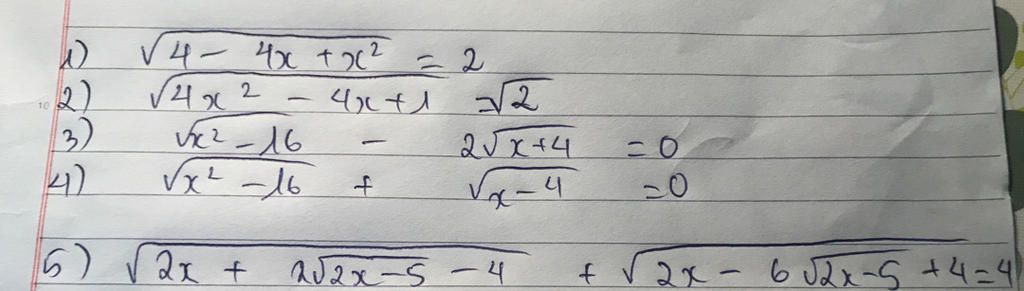 1) √(4 - 4x + x²) = 2
2) √(4x² - 4x + 1) = √2
3) √(x² - 16) - 2√(x+4) = 0
4) √(x² - 16) + √(x - 4) = 0
5) √(2x + 2√(2x-5) - 4) + √(2x - 6√(2x-5) + 4) = 4